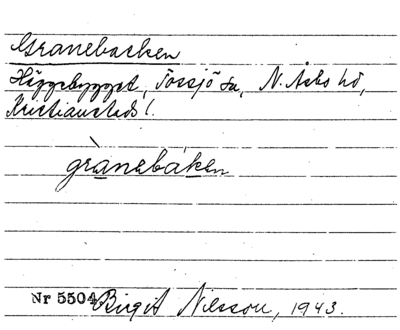 Granebacken
Häggebygget, Tossjö sn, N. Åsbo hd,
Kristianstads l.
grànebàken
Nr 5504 Birgit Nilsson, 1943.